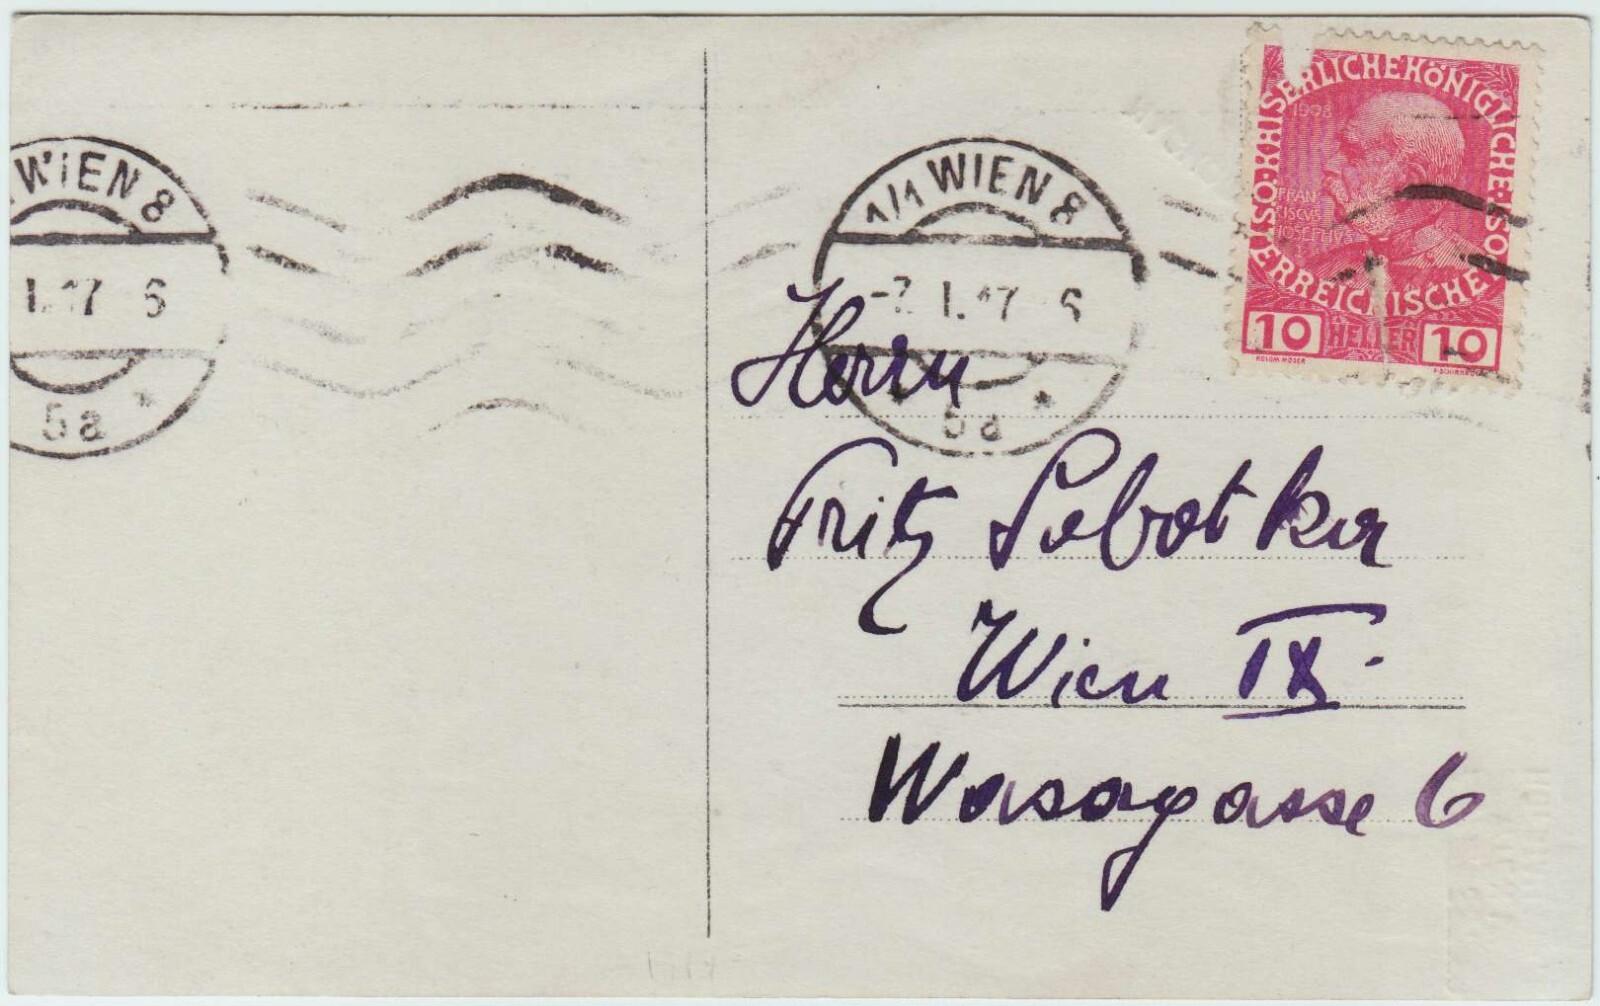 WIEN 8
I.17 6
5a *
1/1 WIEN 8
-7. I. 17 6
5a *
KAISERLICHE KÖNIGLICHE ÖSTERREICHISCHE POST
1908
FRAN
CISCVS
IOSEPHVS
10 HELLER 10
KOLOM. MOSER
Herrn
Fritz Sobotka
Wien IX.
Wasagasse 6